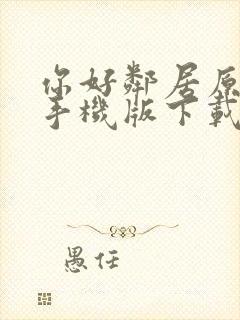 你好鄰居原
手機版下載
愚任